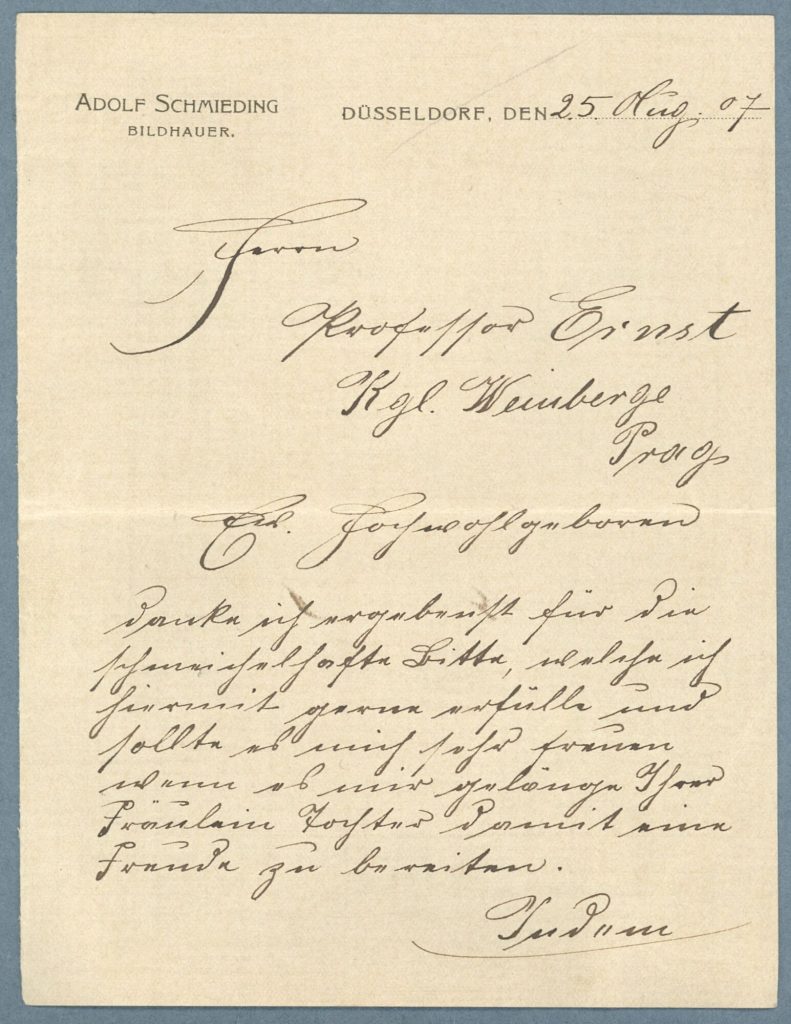 ADOLF SCHMIEDING
BILDHAUER.
DÜSSELDORF, DEN 25. Aug. 07
Herrn
Professor Ernst
Kgl. Weinberge
Prag
Ew. Hochwohlgeboren
danke ich ergebenst für die
schmeichelhafte Bitte, welche ich
hiermit gerne erfülle und
sollte es mich sehr freuen
wenn es mir gelänge Ihrer
Fräulein Tochter damit eine
Freude zu bereiten.
Indem